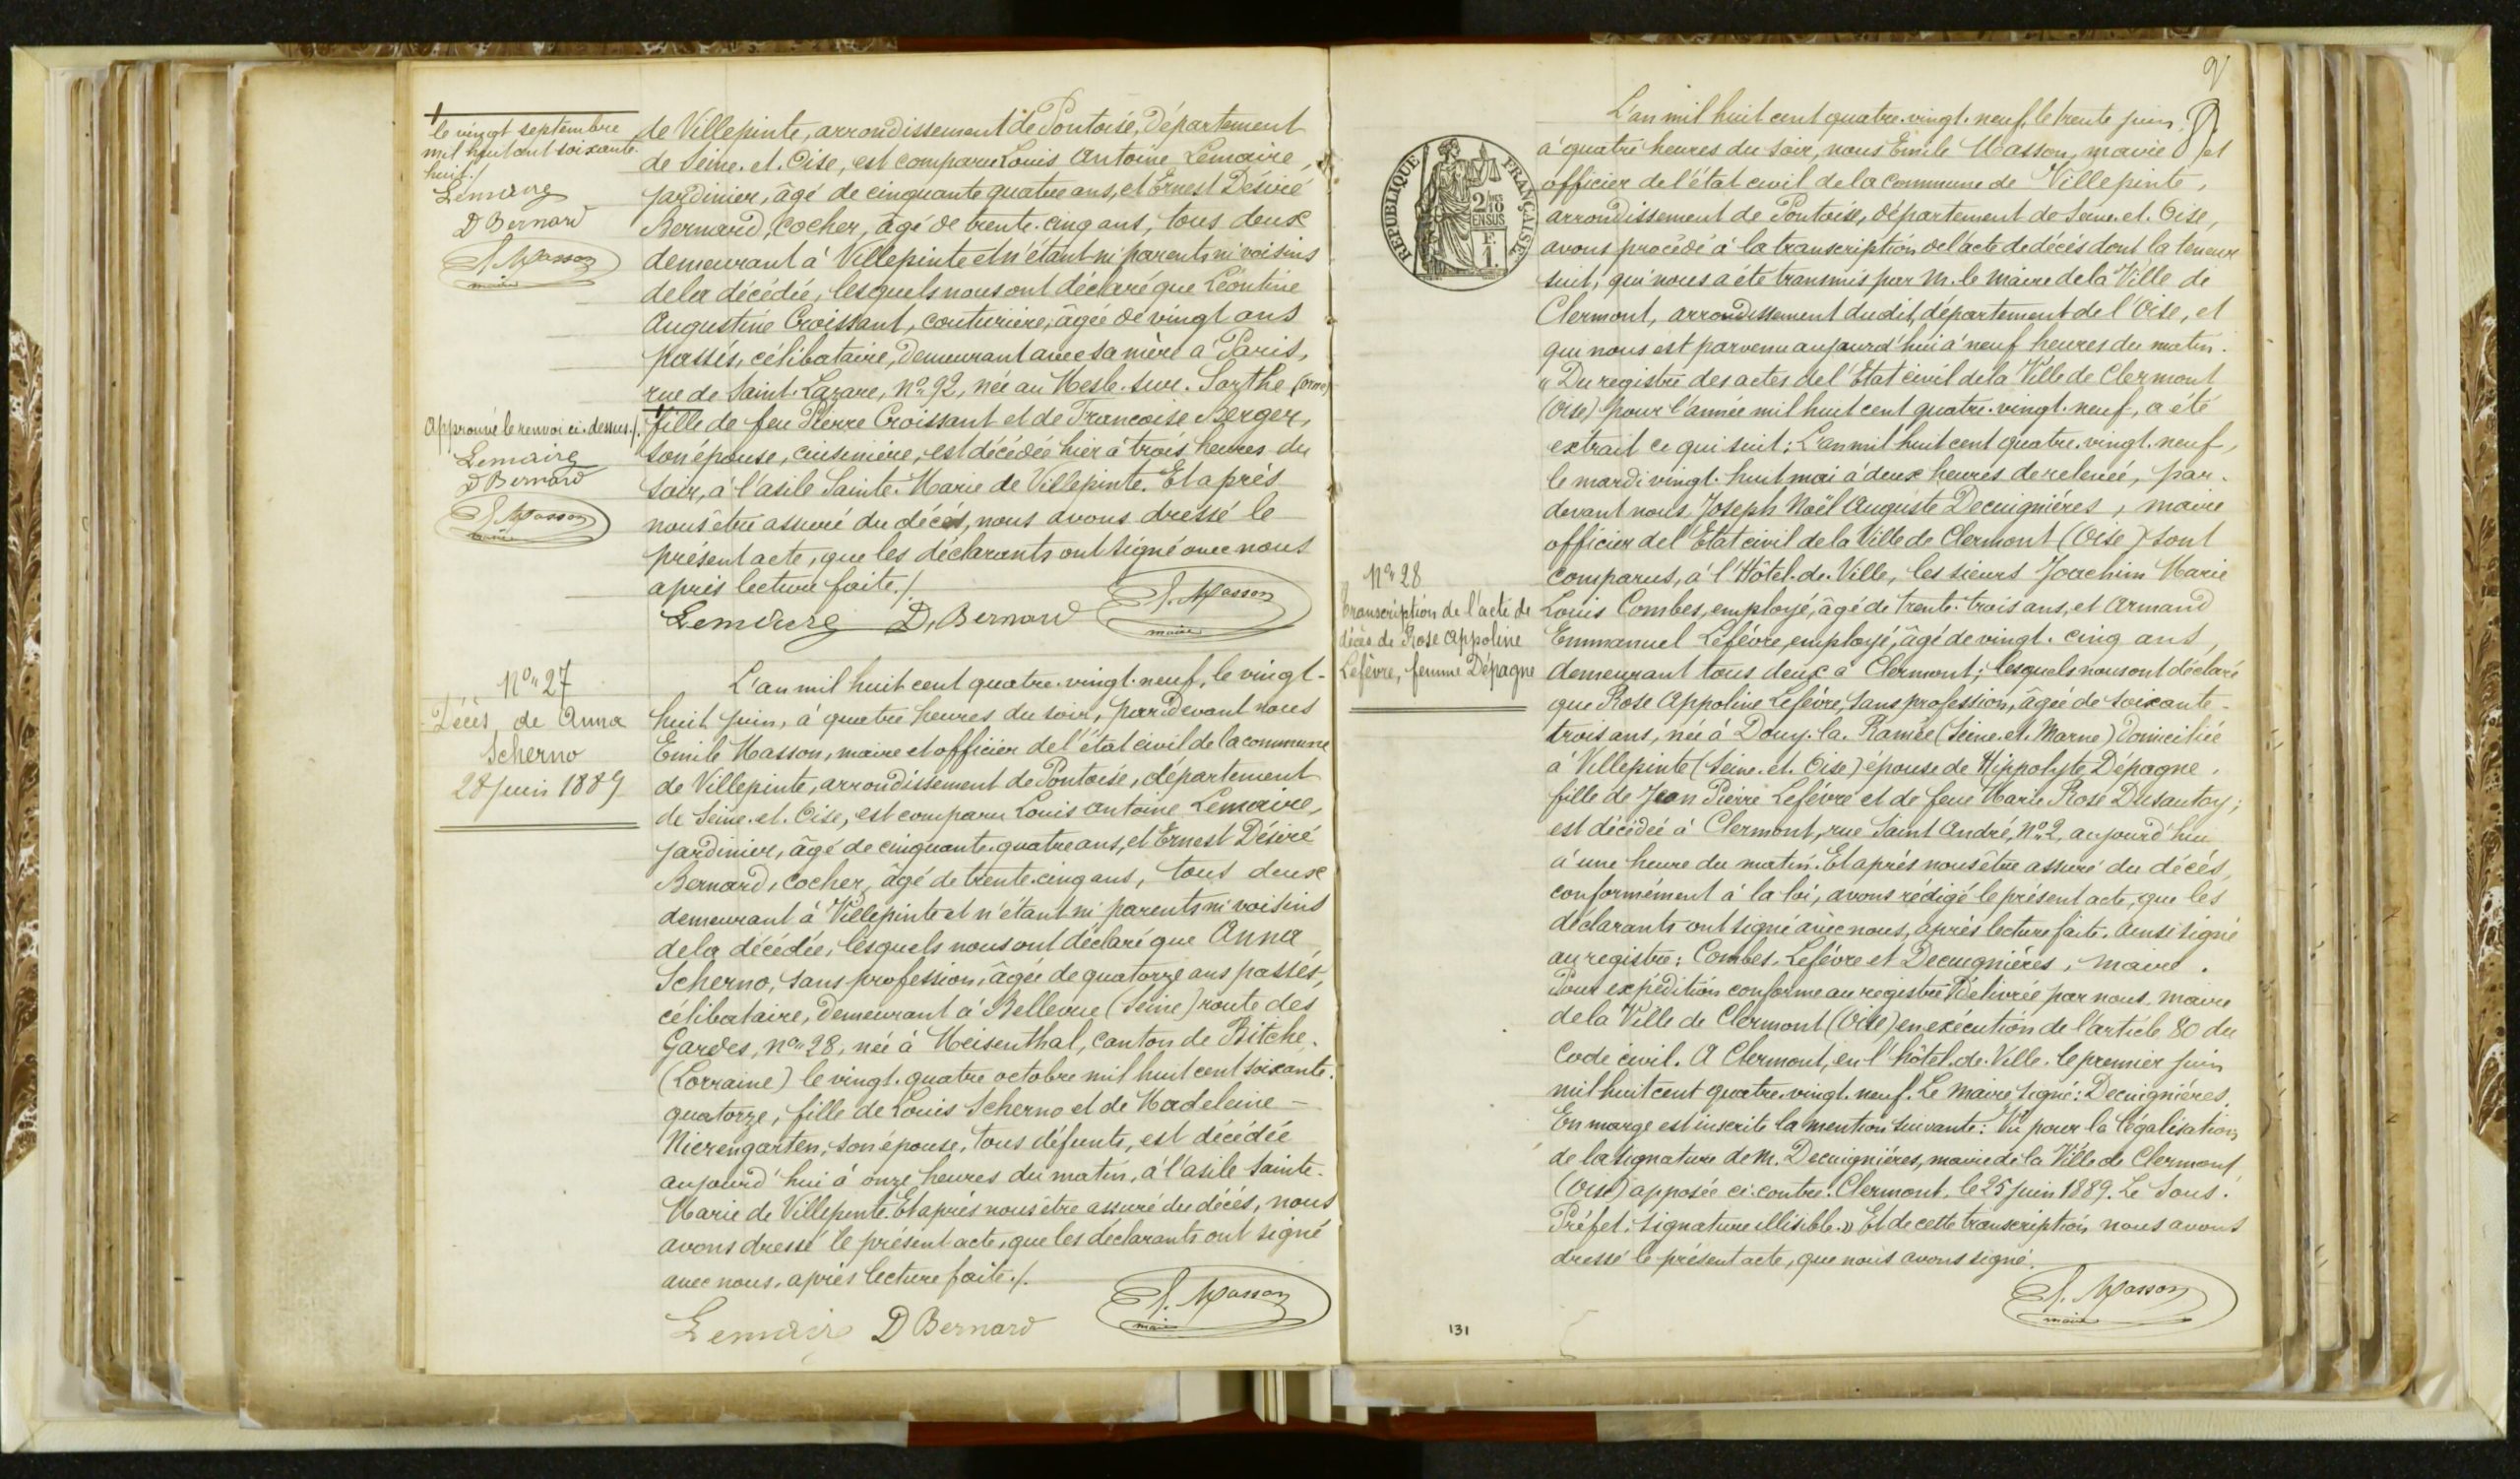 le vingt septembre
mil huit cent soixante
huit./.
Lemaire
D Bernard
E. Masson
maire
de Villepinte, arrondissement de Pontoise, Département
de Seine-et-Oise, est comparu Louis Antoine Lemaire,
jardinier, âgé de cinquante quatre ans, et Ernest Désiré
Bernard, Cocher, âgé de trente-cinq ans, tous deux
demeurant à Villepinte et n'étant ni parents ni voisins
de la décédée, lesquels nous ont déclaré que Léontine
Augustine Croissant, couturière, âgée de vingt ans
passés, célibataire, demeurant avec sa mère à Paris,
rue de Saint-Lazare, No 92, née au Mesle-sur-Sarthe (Orne)
fille de feu Pierre Croissant et de Francoise Berger,
son épouse, cuisinière, est décédée hier à trois heures du
soir, à l'asile Sainte-Marie de Villepinte. Et après
nous être assuré du décès, nous avons dressé le
présent acte, que les déclarants ont signé avec nous
après lecture faite./.
Approuvé le renvoi ci-dessus./.
Lemaire
D Bernard
E. Masson
maire
Lemaire D. Bernard E. Masson
maire
No 27
Décès de Anna
Scherno
28 Juin 1889
L'an mil huit cent quatre-vingt-neuf, le vingt-
huit Juin, à quatre heures du soir, par devant nous
Emile Masson, maire et officier de l'état civil de la commune
de Villepinte, arrondissement de Pontoise, département
de Seine-et-Oise, est comparu Louis Antoine Lemaire,
jardinier, âgé de cinquante-quatre ans, et Ernest Désiré
Bernard, cocher, âgé de trente-cinq ans, tous deux
demeurant à Villepinte et n'étant ni parents ni voisins
de la décédée, lesquels nous ont déclaré que Anna
Scherno, sans profession, âgée de quatorze ans passés,
célibataire, demeurant à Bellevue (Seine) route des
Gardes, no 28, née à Meisenthal, canton de Bitche,
(Lorraine) le vingt-quatre octobre mil huit cent soixante-
quatorze, fille de Louis Scherno et de Madeleine -
Nierengarten, son épouse, tous défunts, est décédée
aujourd'hui à onze heures du matin, à l'asile Sainte-
Marie de Villepinte. Et après nous être assuré du décès, nous
avons dressé le présent acte, que les déclarants ont signé
avec nous, après lecture faite./.
Lemaire D Bernard E. Masson
maire
9
L'an mil huit cent quatre-vingt-neuf, le trente juin,
à quatre heures du soir, nous Emile Masson, maire et
officier de l'état civil de la commune de Villepinte,
arrondissement de Pontoise, département de Seine-et-Oise,
avons procédé à la transcription de l'acte de décès dont la teneur
suit, qui nous a été transmis par M. le Maire de la Ville de
Clermont, arrondissement dudit, département de l'Oise, et
qui nous est parvenu aujourd'hui à neuf heures du matin.
« Du registre des actes de l'Etat civil de la Ville de Clermont
(Oise) pour l'année mil huit cent quatre-vingt-neuf, a été
extrait ce qui suit: L'an mil huit cent quatre-vingt-neuf,
le mardi vingt-huit mai à deux heures de relevée, par-
devant nous Joseph Noël Auguste Decuignières, maire
officier de l'Etat civil de la Ville de Clermont (Oise) sont
comparus, à l'Hôtel-de-Ville, les sieurs Joachim Marie
Louis Combes, employé, âgé de trente-trois ans, et Armand
Emmanuel Lefèvre, employé, âgé de vingt-cinq ans,
demeurant tous deux à Clermont; lesquels nous ont déclaré
que Rose Appoline Lefèvre, sans profession, âgée de soixante-
trois ans, née à Douy-la-Ramée (Seine-et-Marne) Domiciliée
à Villepinte (Seine-et-Oise) épouse de Hippolyte Dépagne,
fille de Jean Pierre Lefèvre et de feue Marie Rose Dusautoy;
est décédée à Clermont, rue Saint André, No 2, aujourd'hui
à une heure du matin. Et après nous être assuré du décès,
conformément à la loi, avons rédigé le présent acte, que les
déclarants ont signé avec nous, après lecture faite. Ainsi signé
au registre: Combes, Lefèvre et Decuignières, Maire.
Pour expédition conforme au registre Délivrée par nous Maire
de la Ville de Clermont (Oise) en exécution de l'article 80 du
Code civil. A Clermont, en l'hôtel-de-Ville, le premier juin
mil huit cent quatre-vingt-neuf. Le Maire signé: Decuignières.
En marge est inscrite la mention suivante: Vu pour la légalisation
de la signature de M. Decuignières, maire de la Ville de Clermont
(Oise) apposée ci-contre. Clermont, le 25 juin 1889. Le Sous-
Préfet: signature illisible. » Et de cette transcription, nous avons
dressé le présent acte, que nous avons signé.
E. Masson
maire
REPUBLIQUE FRANÇAISE
2/10
EN SUS
F.
1.
No 28
Transcription de l'acte de
décès de Rose Appoline
Lefèvre, femme Dépagne
131